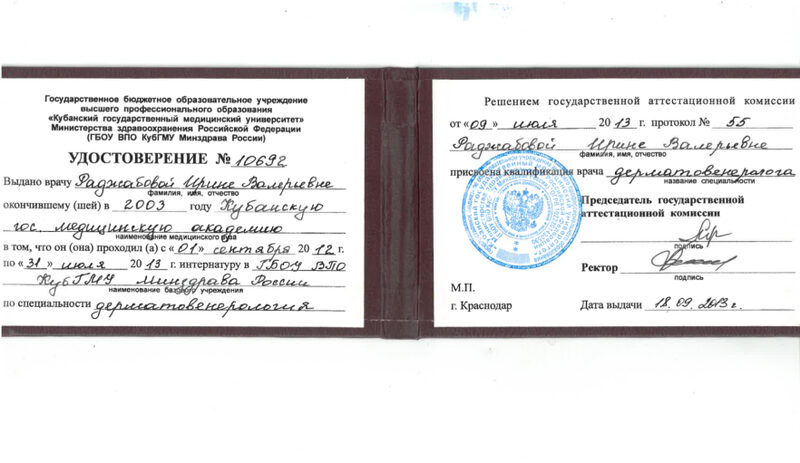 Государственное бюджетное образовательное учреждение
высшего профессионального образования
«Кубанский государственный медицинский университет»
Министерства здравоохранения Российской Федерации
(ГБОУ ВПО КубГМУ Минздрава России)
УДОСТОВЕРЕНИЕ № 10692
Выдано врачу Раджабовой Ирине Валерьевне
фамилия, имя, отчество
окончившему (шей) в 2003 году Кубанскую
гос. медицинскую академию
наименование медицинского вуза
в том, что он (она) проходил (а) с «01» сентября 2012 г.
по «31» июля 2013 г. интернатуру в ГБОУ ВПО
КубГМУ Минздрава России
наименование базового учреждения
по специальности дерматовенерология
Решением государственной аттестационной комиссии
от «09» июля 2013 г. протокол № 55
Раджабовой Ирине Валерьевне
фамилия, имя, отчество
присвоена квалификация врача дерматовенеролога
название специальности
Председатель государственной
аттестационной комиссии
подпись
Ректор
подпись
М.П.
г. Краснодар Дата выдачи 18.09.2013 г.